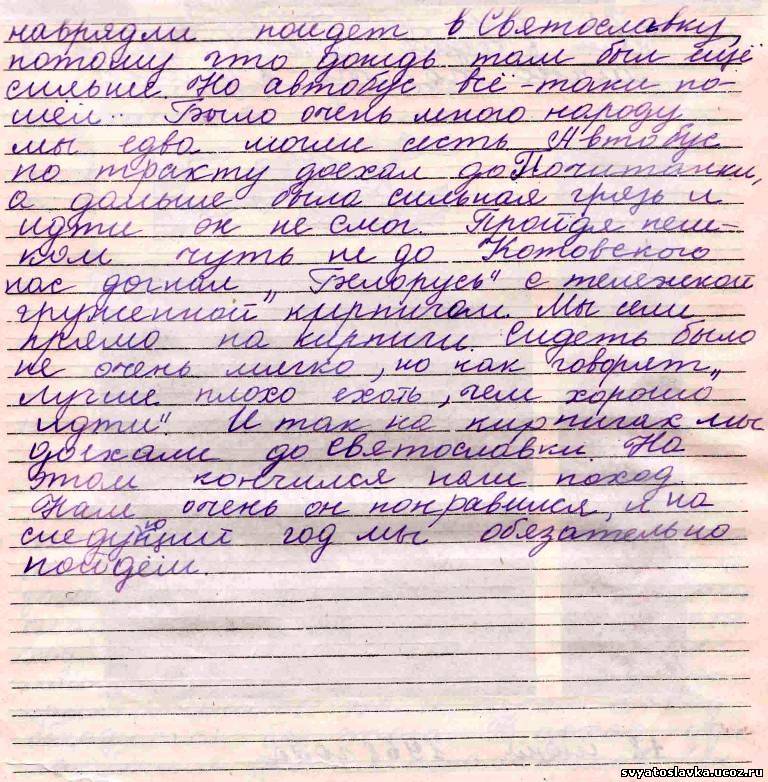 наврядли пойдет в Святославку,
потому что дождь там был ещё
сильнее. Но автобус всё-таки по-
шёл.. Было очень много народу
мы едва могли сесть Автобус
по тракту доехал до Почитанки,
а дальше была сильная грязь и
идти он не смог. Пройдя пеш-
ком чуть не до Котовского
нас догнал „Белорусь" с тележкой
груженной кирпичом. Мы сели
прямо на кирпичи. Сидеть было
не очень мягко, но как говорят „
лучше плохо ехать, чем хорошо
идти". И так на кирпичах мы
доехали до Святославки. На
этом кончился наш поход
Нам очень он понравился, и на
следующий год мы обязательно
пойдём.
svyatoslovka.ucoz.ru